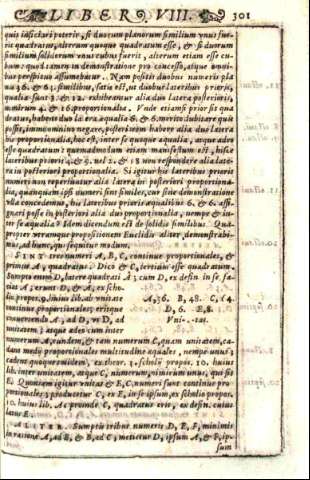 LIBER VIII. 301
quis inficiari poterit, si duorum planorum similium vnus fue-
rit quadratus, alterum quoque quadratum esse, & si duorum
similium solidorum vnus cubus fuerit, alterum etiam esse cu-
bum: quod tamen in demonstratione pro concesso, atque
perspicuo assumebatur. Nam positis duobus numeris pla-
nis 36. & 64. similibus, satis est, vt duobus lateribus prioris,
qualia sunt 3. & 12. exhibeantur alia duo latera posterioris,
nimirum 4. & 16. proportionalia. Vnde etiamsi prior sit qua-
dratus, habens duo latera æqualia 6. & 6. merito dubitare quis
possit, immo omnino negare, posteriorem habere alia duo latera
his proportionalia, hoc est, inter se quoque æqualia, atque adeo
esse quadratum: quemadmodum etiam manifestum est, hisce
lateribus prioris 4. & 9. vel 2. & 18. non respondere alia late-
ra in posteriori proportionalia. Si igitur his lateribus prioris
numeri non reperiuntur alia latera in posteriori proportiona-
lia, quanquam ipsi numeri sint similes, cur sine demonstratione
vlla concedemus, his lateribus prioris æqualibus 6. & 6. assi-
gnari posse in posteriori alia duo proportionalia, nempe & in-
ter se æqualia? Idem dicendum est de solidis similibus. Qua-
propter vtramque propositionem Euclidis aliter demonstrabi-
mus, ad hunc, qui sequitur modum.
SINT tres numeri A, B, C, continue proportionales, &
primus A, quadratus. Dico & C, tertium esse quadratum.
Sumpto enim D, latere quadrati A; cum D, ex defin. in se fa-
ciat A; erunt D, & A, ex scho-
lio propos. 9. huius lib. ab vnitate
continue proportionales; eritque
conuertendo A, ad D, vt D, ad
vnitatem; atque adeo cum inter
A, 36. B, 48. C, 64.
D, 6. E, 8.
Vni-..tas.
numerum A, eundem, & tam numerum C, quam vnitatem, ca-
dant medij proportionales multitudine æquales, nempe vnus;
cadens quoque eidem, ex theor. 1. scholij propos. 10. huius
lib. inter vnitatem, atque C, numerum, nimirum vnus, qui sit
E. Quoniam igitur vnitas & E, C, numeri sunt continue pro-
portionales; producetur C, ex E, in se ipsum, ex scholio propos.
10. huius lib. Ac proinde C, quadratus erit, ex defin. cuius
latus E.
ALITER. Sumptis tribus numeris D, E, F, minimis
in ratione A, ad B, & B, ad C; metietur D, ipsum A, & F, ip-
sum